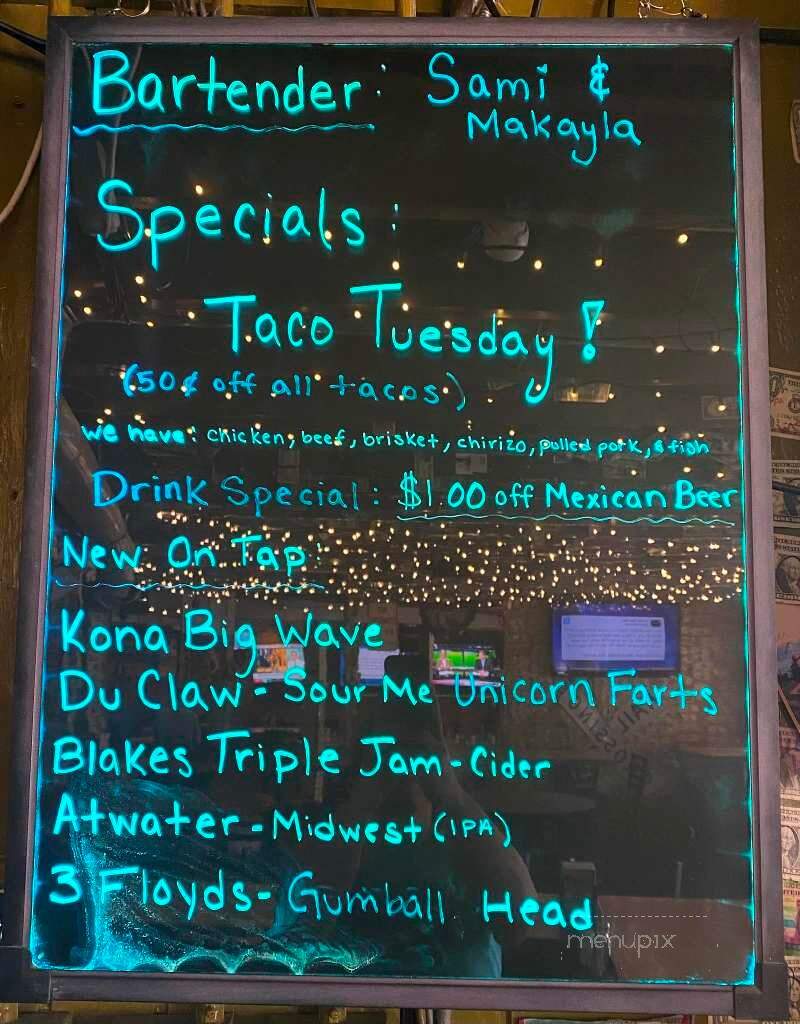 Bartender: Sami &
Makayla
Specials:
Taco Tuesday!
(50¢ off all tacos)
we have: chicken, beef, brisket, chirizo, pulled pork, & fish
Drink Special: $1.00 off Mexican Beer
New On Tap:
Kona Big Wave
Du Claw - Sour Me Unicorn Farts
Blakes Triple Jam - Cider
Atwater - Midwest (IPA)
3 Floyds - Gumball Head
menupix